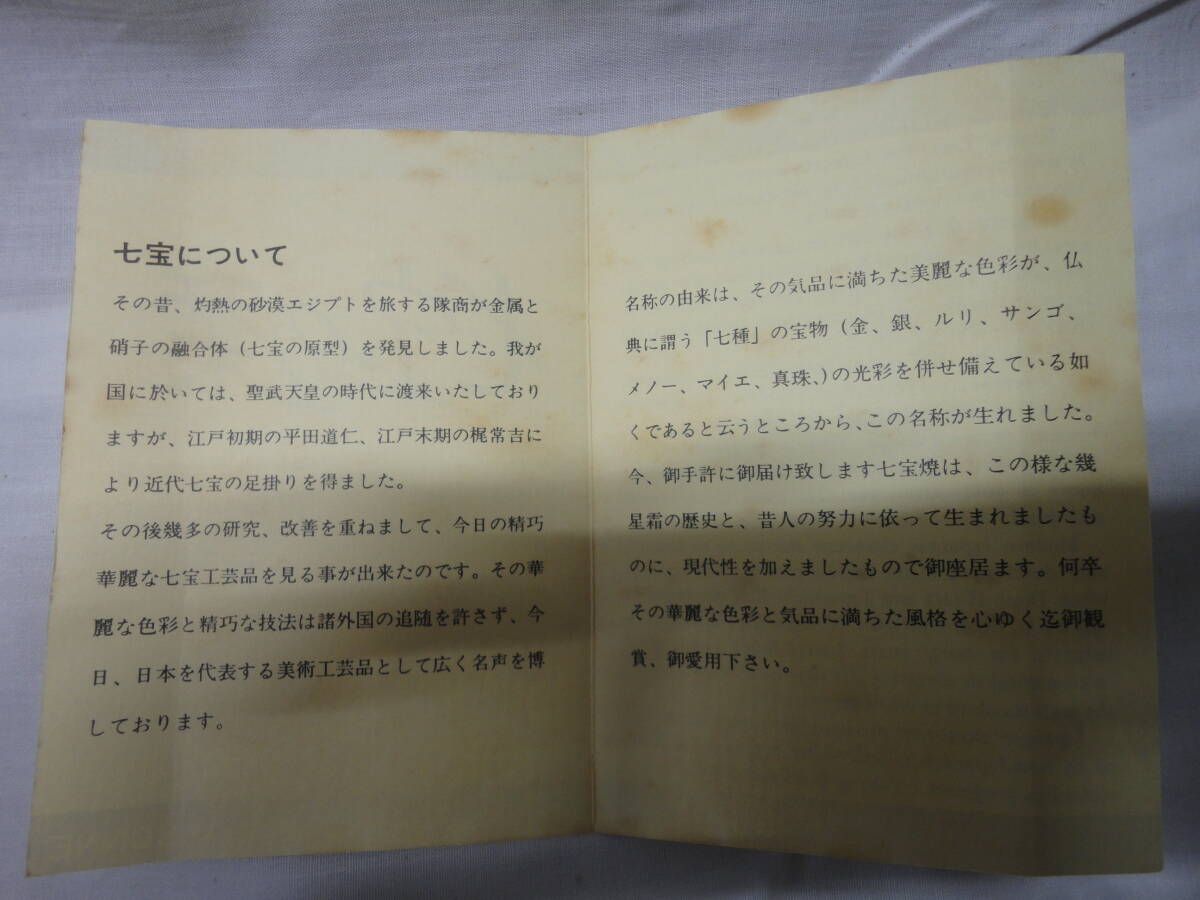 七宝について
その昔、灼熱の砂漠エジプトを旅する隊商が金属と
硝子の融合体（七宝の原型）を発見しました。我が
国に於いては、聖武天皇の時代に渡来いたしており
ますが、江戸初期の平田道仁、江戸末期の梶常吉に
より近代七宝の足掛りを得ました。
その後幾多の研究、改善を重ねまして、今日の精巧
華麗な七宝工芸品を見る事が出来たのです。その華
麗な色彩と精巧な技法は諸外国の追随を許さず、今
日、日本を代表する美術工芸品として広く名声を博
しております。
名称の由来は、その気品に満ちた美麗な色彩が、仏
典に謂う「七種」の宝物（金、銀、ルリ、サンゴ、
メノー、マイエ、真珠、）の光彩を併せ備えている如
くであると云うところから、この名称が生れました。
今、御手許に御届け致します七宝焼は、この様な幾
星霜の歴史と、昔人の努力に依って生まれましたも
のに、現代性を加えましたもので御座居ます。何卒
その華麗な色彩と気品に満ちた風格を心ゆく迄御観
賞、御愛用下さい。